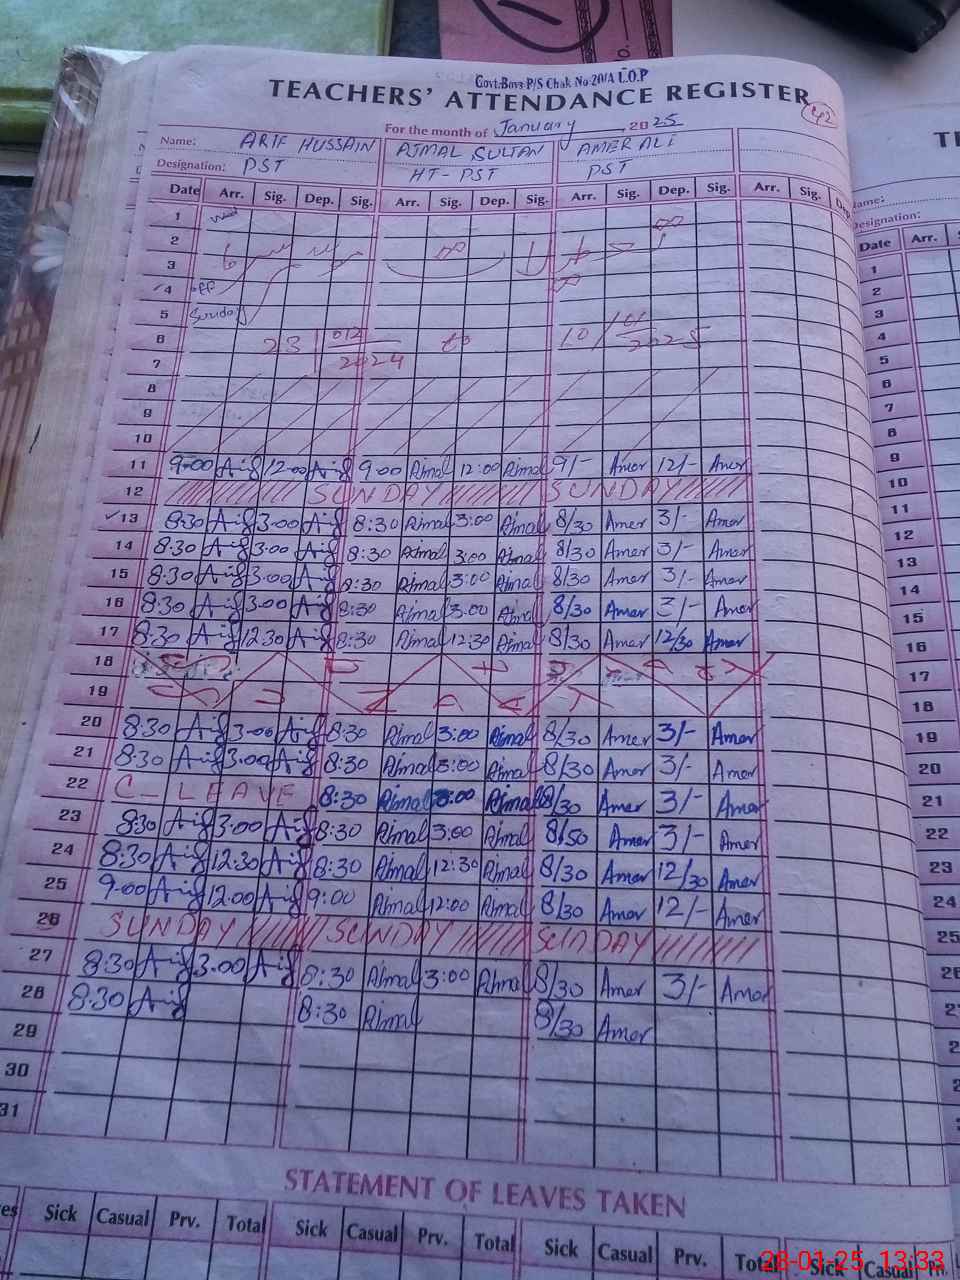 Govt. Boys P/S Chak No. 20/A L.O.P
TEACHERS' ATTENDANCE REGISTER
42
For the month of January 2025
Name: ARIF HUSSAIN AJMAL SULTAN AMER ALI
Designation: PST HT-PST PST
Date Arr. Sig. Dep. Sig. Arr. Sig. Dep. Sig. Arr. Sig. Dep. Sig. Arr. Sig. Dep.
1
2
3
4 off
5 Sunday
6 23 / 012 to 10 / 01
7 2024 2025
8
9
10
11 9-00 Arif 12-00 Arif 9:00 Ajmal 12:00 Ajmal 9/- Amer 12/- Amer
12 SUNDAY SUNDAY
13 8:30 Arif 3.00 Arif 8:30 Ajmal 3:00 Ajmal 8/30 Amer 3/- Amer
14 8:30 Arif 3.00 Arif 8:30 Ajmal 3:00 Ajmal 8/30 Amer 3/- Amer
15 8:30 Arif 3.00 Arif 8:30 Ajmal 3:00 Ajmal 8/30 Amer 3/- Amer
16 8:30 Arif 3.00 Arif 8:30 Ajmal 3:00 Ajmal 8/30 Amer 3/- Amer
17 8:30 Arif 12.30 Arif 8:30 Ajmal 12:30 Ajmal 8/30 Amer 12/30 Amer
18
19
20 8:30 Arif 3-00 Arif 8:30 Ajmal 3:00 Ajmal 8/30 Amer 3/- Amer
21 8:30 Arif 3.00 Arif 8:30 Ajmal 3:00 Ajmal 8/30 Amer 3/- Amer
22 C-LEAVE 8:30 Ajmal 3:00 Ajmal 8/30 Amer 3/- Amer
23 8:30 Arif 3.00 Arif 8:30 Ajmal 3:00 Ajmal 8/30 Amer 3/- Amer
24 8:30 Arif 12:30 Arif 8:30 Ajmal 12:30 Ajmal 8/30 Amer 12/30 Amer
25 9-00 Arif 12:00 Arif 9:00 Ajmal 12:00 Ajmal 8/30 Amer 12/- Amer
26 SUNDAY SUNDAY SUNDAY
27 8:30 Arif 3.00 Arif 8:30 Ajmal 3:00 Ajmal 8/30 Amer 3/- Amer
28 8:30 Arif 8:30 Ajmal 8/30 Amer
29
30
31
STATEMENT OF LEAVES TAKEN
Sick Casual Prv. Total Sick Casual Prv. Total Sick Casual Prv. Total Sick Casual
28-01-25 13:33
Designation:
Date Arr.
1
2
3
4
5
6
7
8
9
10
11
12
13
14
15
16
17
18
19
20
21
22
23
24
25